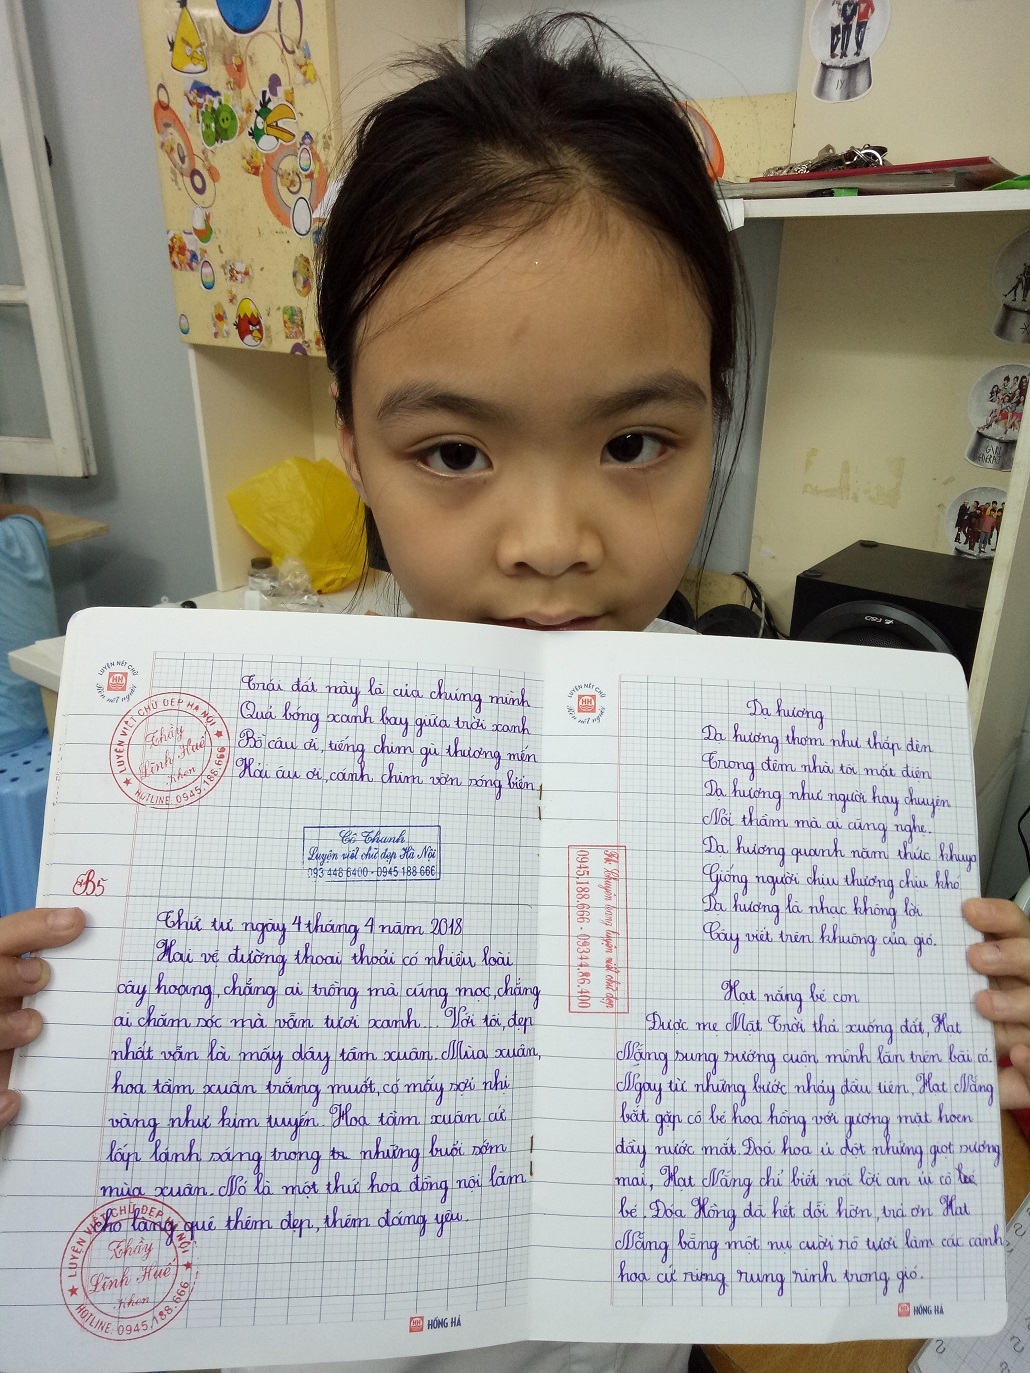 LUYỆN NÉT CHỮ
Rèn nết người
HH
LUYỆN VIẾT CHỮ ĐẸP HÀ NỘI
Thầy
Lĩnh Huế
Khen
HOTLINE: 0945.188.666
Trái đất này là của chúng mình
Quả bóng xanh bay giữa trời xanh
Bồ câu ơi, tiếng chim gù thương mến
Hải âu ơi, cánh chim vờn sóng biển
Cô Thanh
Luyện viết chữ đẹp Hà Nội
093 448 6400 - 0945 188 666
B5
Thứ tư ngày 4 tháng 4 năm 2018
Hai vệ đường thoai thoải có nhiều loài
cây hoang, chẳng ai trồng mà cũng mọc, chẳng
ai chăm sóc mà vẫn tươi xanh... Với tôi, đẹp
nhất vẫn là mấy dây tầm xuân. Mùa xuân,
hoa tầm xuân trắng muốt, có mấy sợi nhị
vàng như kim tuyến. Hoa tầm xuân cứ
lấp lánh sáng trong tr những buổi sớm
mùa xuân. Nó là một thứ hoa đồng nội làm
cho làng quê thêm đẹp, thêm đáng yêu.
LUYỆN VIẾT CHỮ ĐẸP HÀ NỘI
Thầy
Lĩnh Huế
Khen
HOTLINE: 0945.188.666
HH HỒNG HÀ
LUYỆN NÉT CHỮ
Rèn nết người
HH
Dạ hương
Dạ hương thơm như thắp đèn
Trong đêm nhà tôi mất điện
Dạ hương như người hay chuyện
Nói thầm mà ai cũng nghe.
Dạ hương quanh năm thức khuya
Giống người chịu thương chịu khó
Dạ hương là nhạc không lời
Cây viết trên khuông của gió.
0945.188.666 - 09344.86.400
Hạt nắng bé con
Được mẹ Mặt Trời thả xuống đất, Hạt
Nắng sung sướng cuộn mình lăn trên bãi cỏ.
Ngay từ những bước nhảy đầu tiên, Hạt Nắng
bắt gặp cô bé hoa hồng với gương mặt hoen
đầy nước mắt. Đoá hoa ủ dột những giọt sương
mai, Hạt Nắng chỉ biết nói lời an ủi cô
bé. Đóa Hồng đã hết dỗi hờn, trả ơn Hạt
Nắng bằng một nụ cười rõ tươi làm các cánh
hoa cứ rưng rung rinh trong gió.
HH HỒNG HÀ